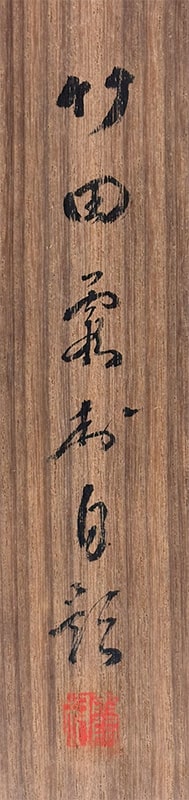 竹田霞村自題